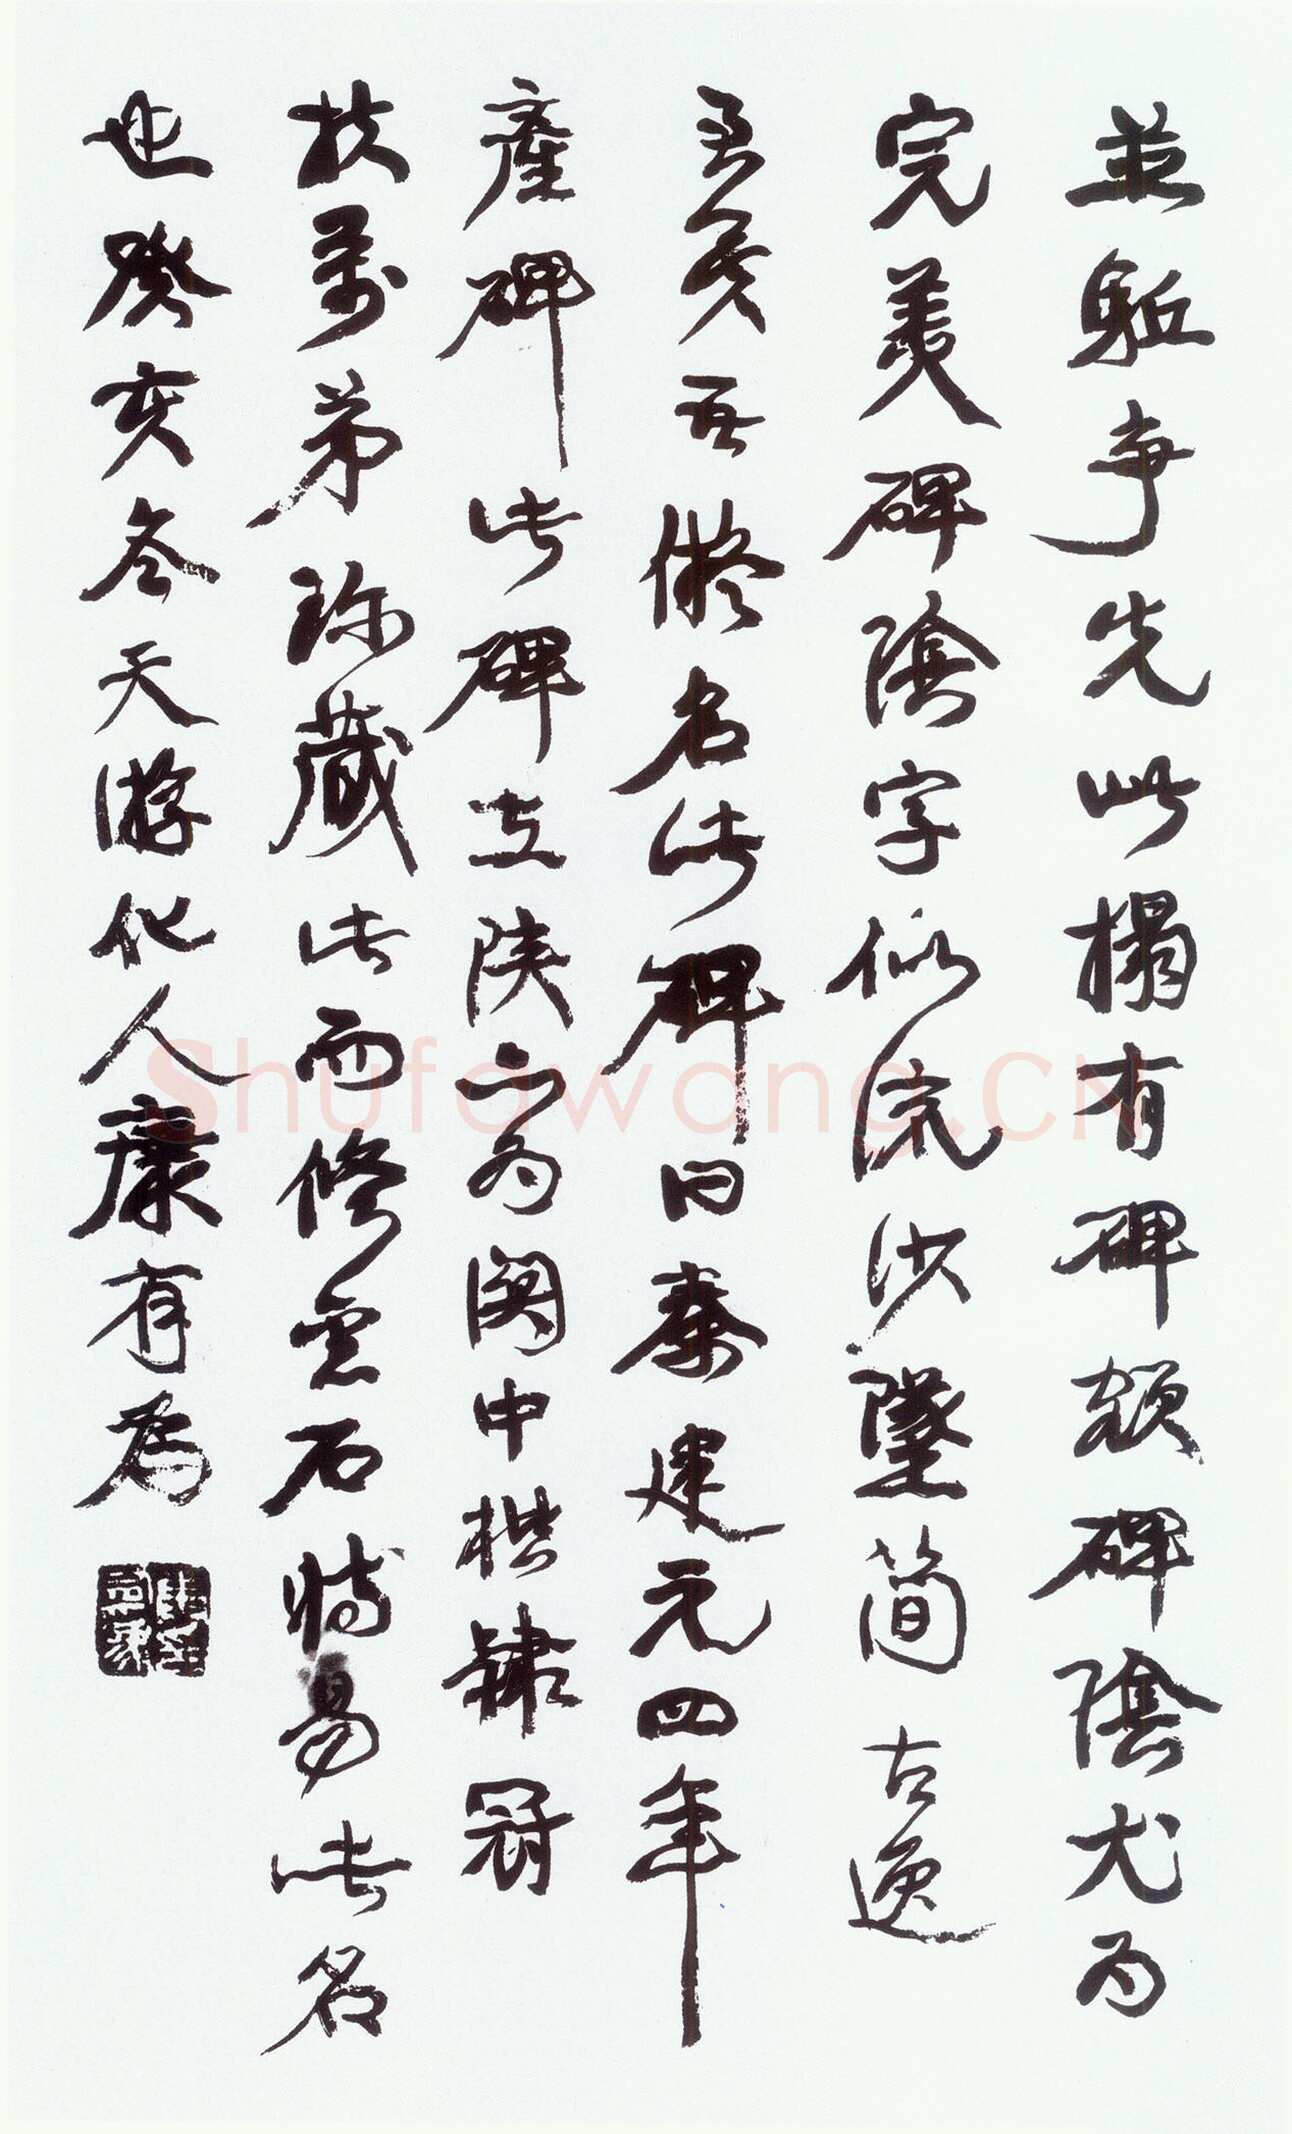 並駈爭先此搨有碑額碑陰尤為
完美碑陰字似流沙墜簡古逸
至矣吾儗名此碑曰秦建元四年
產碑此碑立陝為關中楷隸冠
扶萬弟珍藏此而修石易此名
也癸亥冬天游化人康有為
Shufawang.CN